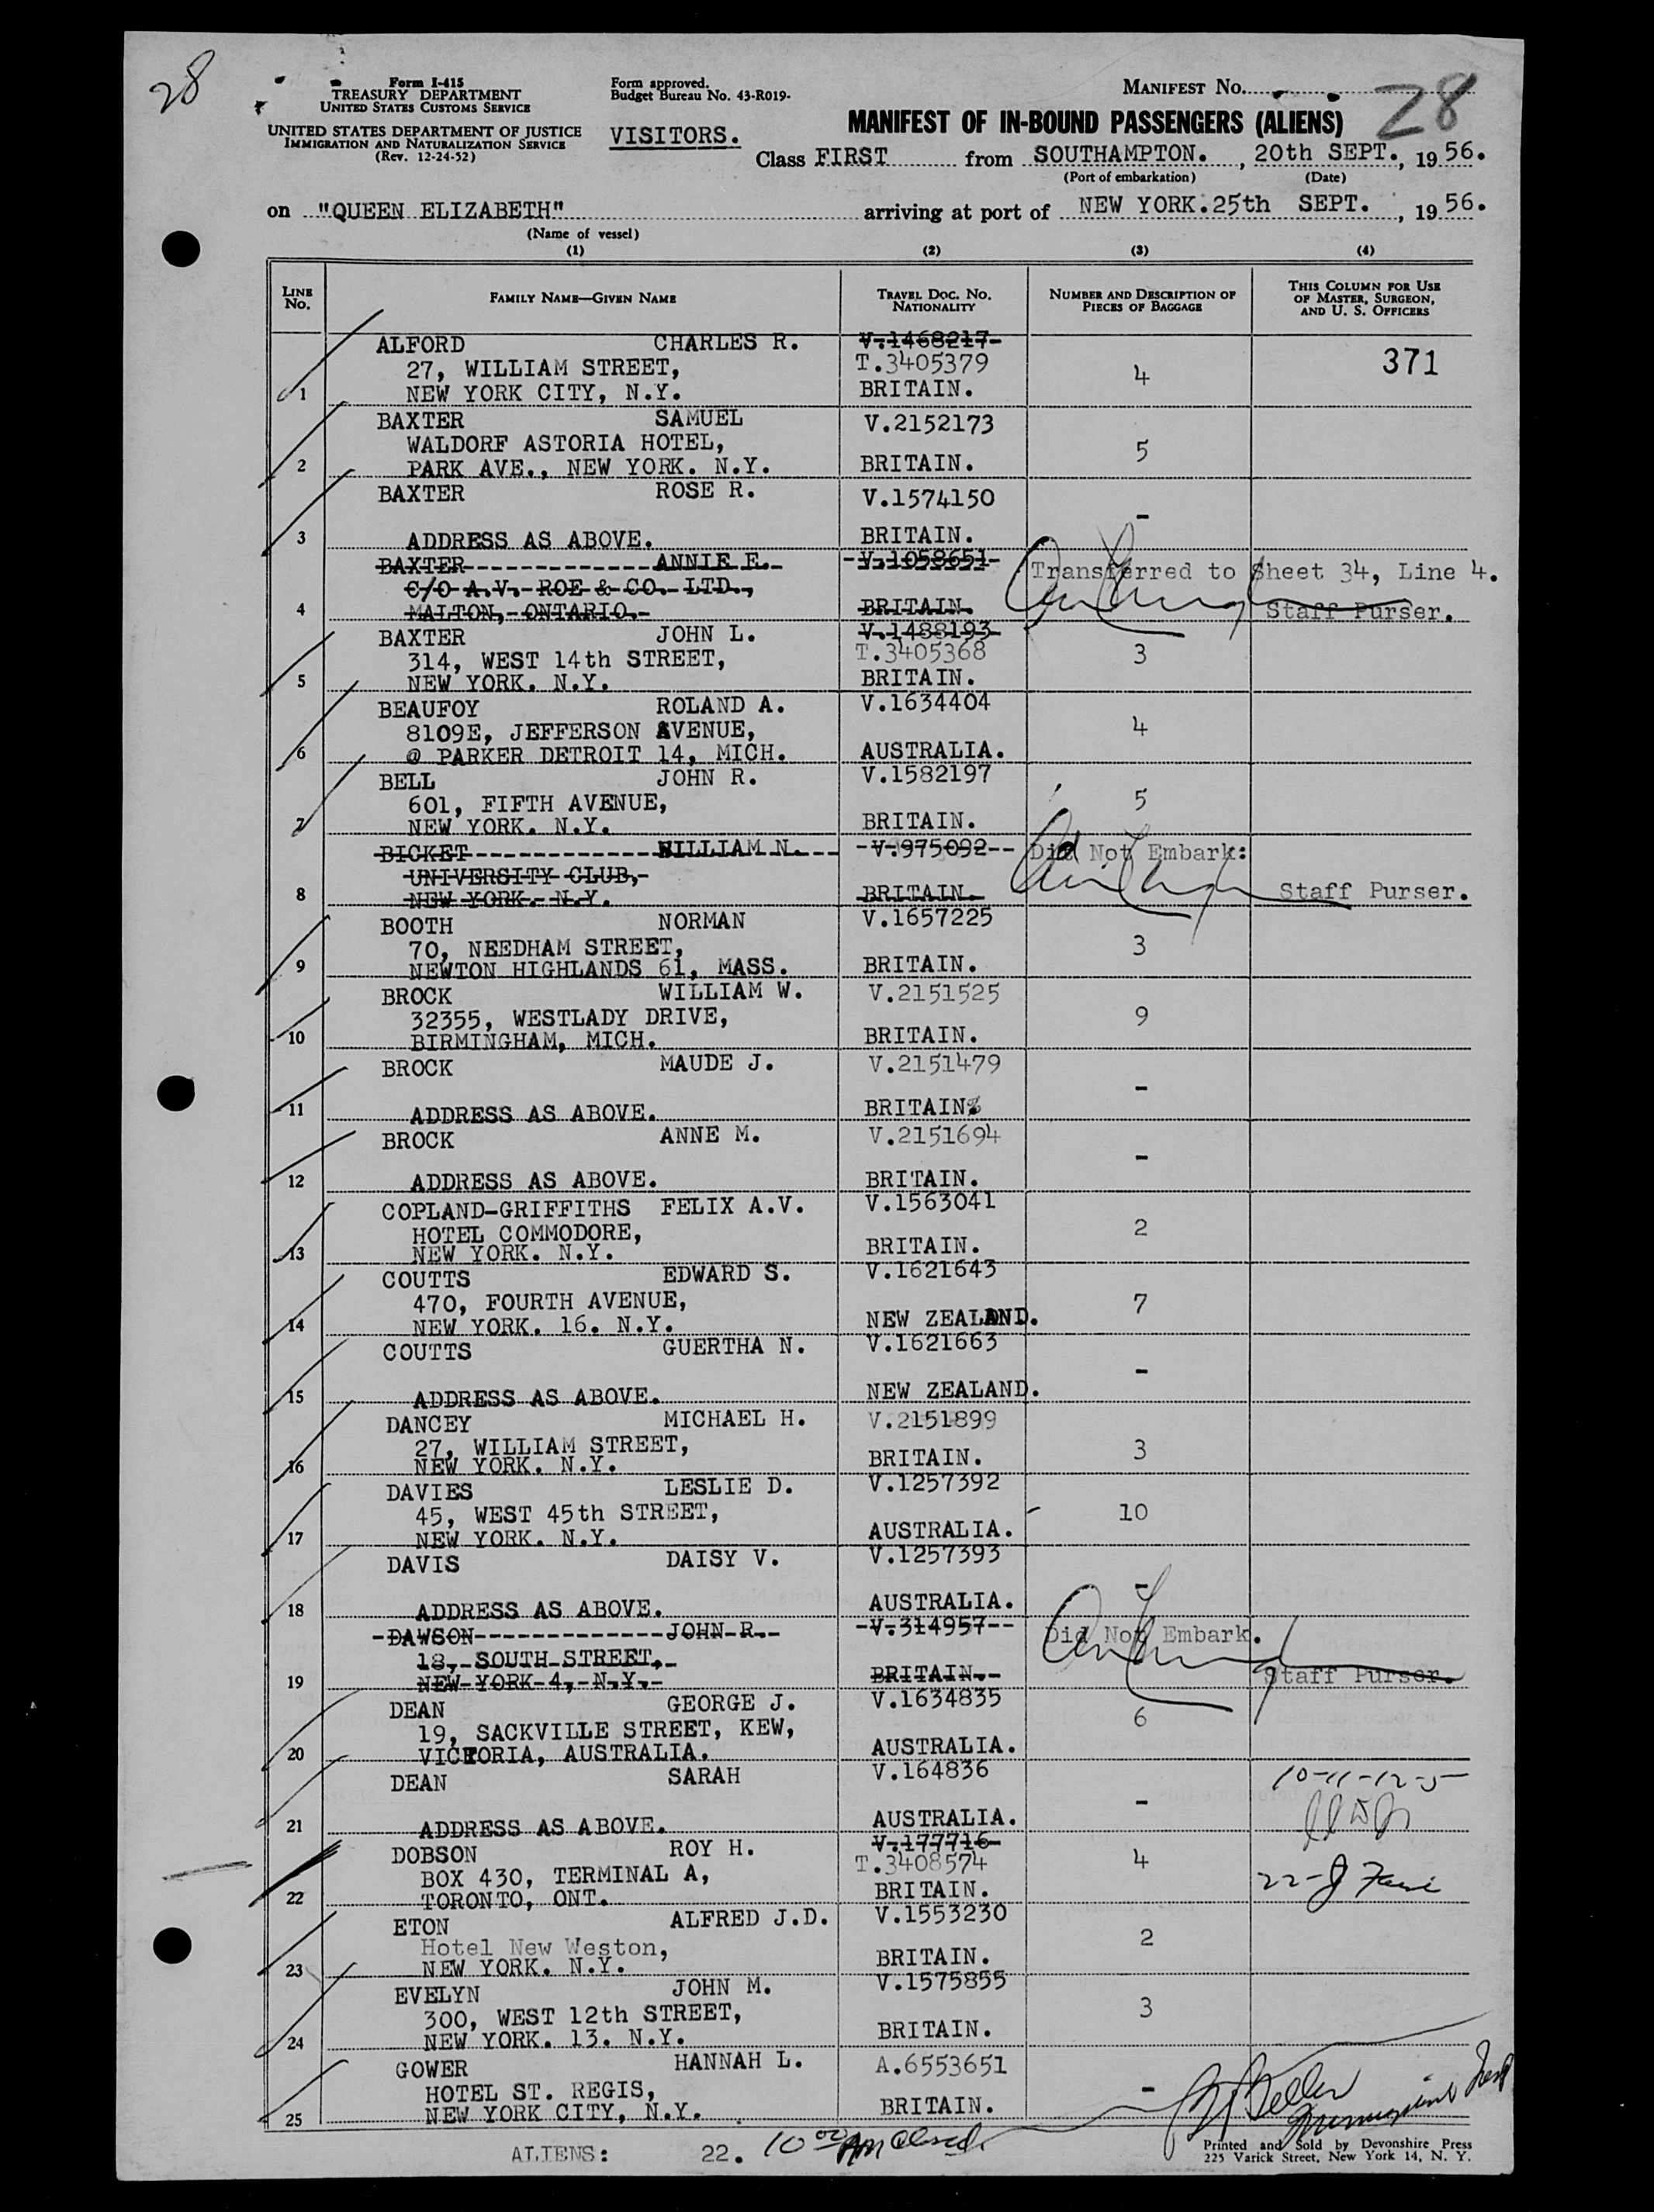 28
Form I-415
TREASURY DEPARTMENT
UNITED STATES CUSTOMS SERVICE
UNITED STATES DEPARTMENT OF JUSTICE
IMMIGRATION AND NATURALIZATION SERVICE
(Rev. 12-24-52)
Form approved.
Budget Bureau No. 43-R019-
VISITORS.
MANIFEST No. 28
MANIFEST OF IN-BOUND PASSENGERS (ALIENS)
Class FIRST from SOUTHAMPTON., 20th SEPT., 1956.
(Port of embarkation) (Date)
on "QUEEN ELIZABETH" arriving at port of NEW YORK. 25th SEPT., 1956.
(Name of vessel)
(1) (2) (3) (4)
LINE No. FAMILY NAME—GIVEN NAME TRAVEL DOC. No. NATIONALITY NUMBER AND DESCRIPTION OF PIECES OF BAGGAGE THIS COLUMN FOR USE OF MASTER, SURGEON, AND U. S. OFFICERS
ALFORD CHARLES R. V.1468217
27, WILLIAM STREET, T.3405379 4 371
1 NEW YORK CITY, N.Y. BRITAIN.
BAXTER SAMUEL V.2152173
WALDORF ASTORIA HOTEL, 5
2 PARK AVE., NEW YORK. N.Y. BRITAIN.
BAXTER ROSE R. V.1574150
-
3 ADDRESS AS ABOVE. BRITAIN.
BAXTER ANNIE E. V.1058651 Transferred to Sheet 34, Line 4.
C/O A.V. ROE & CO. LTD.,
4 MALTON, ONTARIO. BRITAIN. Staff Purser.
BAXTER JOHN L. V.1488193
314, WEST 14th STREET, T.3405368 3
5 NEW YORK. N.Y. BRITAIN.
BEAUFOY ROLAND A. V.1634404
8109E, JEFFERSON AVENUE, 4
6 @ PARKER DETROIT 14, MICH. AUSTRALIA.
BELL JOHN R. V.1582197
601, FIFTH AVENUE, 5
7 NEW YORK. N.Y. BRITAIN.
BICKET WILLIAM N. V.975092 Did Not Embark:
UNIVERSITY CLUB,
8 NEW YORK. N.Y. BRITAIN. Staff Purser.
BOOTH NORMAN V.1657225
70, NEEDHAM STREET, 3
9 NEWTON HIGHLANDS 61, MASS. BRITAIN.
BROCK WILLIAM W. V.2151525
32355, WESTLADY DRIVE, 9
10 BIRMINGHAM, MICH. BRITAIN.
BROCK MAUDE J. V.2151479
-
11 ADDRESS AS ABOVE. BRITAIN
BROCK ANNE M. V.2151694
-
12 ADDRESS AS ABOVE. BRITAIN.
COPLAND-GRIFFITHS FELIX A.V. V.1563041
HOTEL COMMODORE, 2
13 NEW YORK. N.Y. BRITAIN.
COUTTS EDWARD S. V.1621643
470, FOURTH AVENUE, 7
14 NEW YORK. 16. N.Y. NEW ZEALAND.
COUTTS GUERTHA N. V.1621663
-
15 ADDRESS AS ABOVE. NEW ZEALAND.
DANCEY MICHAEL H. V.2151899
27, WILLIAM STREET, 3
16 NEW YORK. N.Y. BRITAIN.
DAVIES LESLIE D. V.1257392
45, WEST 45th STREET, 10
17 NEW YORK. N.Y. AUSTRALIA.
DAVIS DAISY V. V.1257393
-
18 ADDRESS AS ABOVE. AUSTRALIA.
DAWSON JOHN R. V.314957 Did Not Embark.
18, SOUTH STREET,
19 NEW YORK 4, N.Y. BRITAIN. Staff Purser.
DEAN GEORGE J. V.1634835
19, SACKVILLE STREET, KEW, 6
20 VICTORIA, AUSTRALIA. AUSTRALIA.
DEAN SARAH V.164836 10-11-12-5
-
21 ADDRESS AS ABOVE. AUSTRALIA.
DOBSON ROY H. V.177716
BOX 430, TERMINAL A, T.3408574 4
22 TORONTO, ONT. BRITAIN. 22-
ETON ALFRED J.D. V.1553230
Hotel New Weston, 2
23 NEW YORK. N.Y. BRITAIN.
EVELYN JOHN M. V.1575855
300, WEST 12th STREET, 3
24 NEW YORK. 13. N.Y. BRITAIN.
GOWER HANNAH L. A.6553651
HOTEL ST. REGIS, -
25 NEW YORK CITY, N.Y. BRITAIN.
ALIENS: 22. 10 00 AM closed.
Printed and Sold by Devonshire Press
225 Varick Street, New York 14, N. Y.